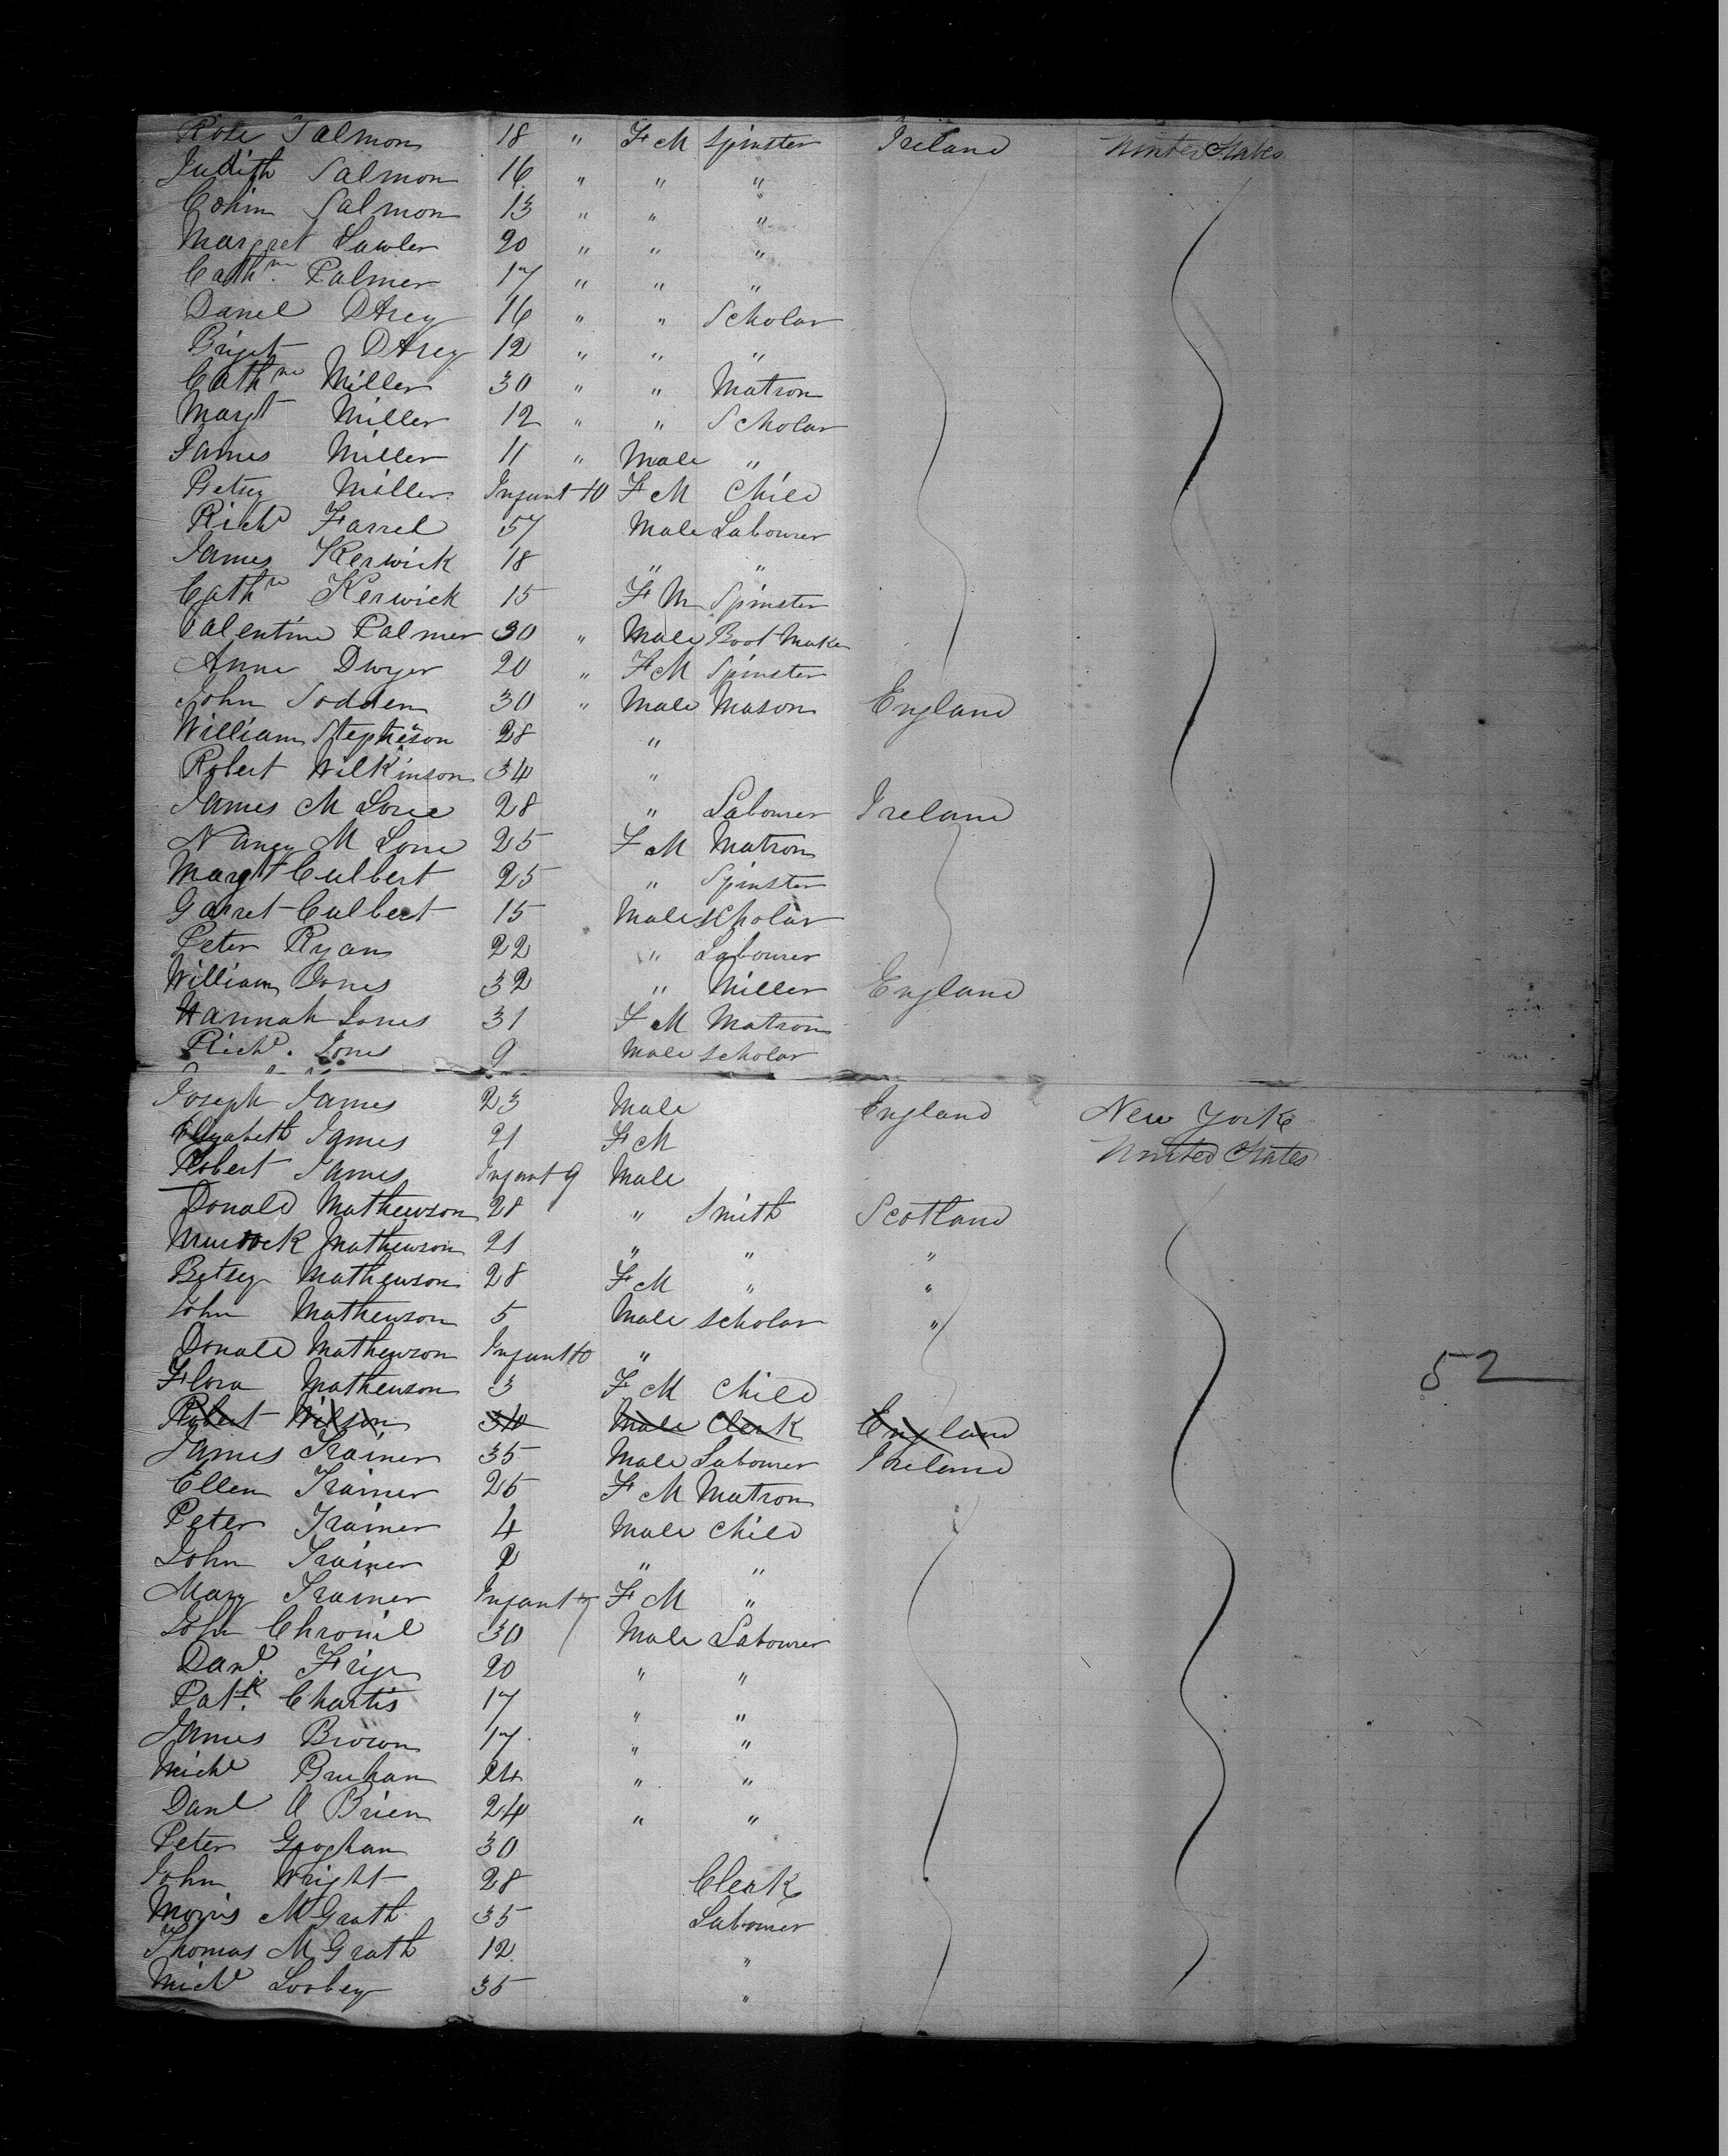 Rose Salmon 18 " F M Spinster Ireland United States
Judith Salmon 16 " " "
Salmon 13 " " "
Margret Lawler 20 " " "
Cathne Palmer 17 " " "
Danel DArcy 16 " " Scholar
Briget DArcy 12 " " "
Cathne Miller 30 " " Matron
Margt Miller 12 " " Scholar
James Miller 11 " Male "
Betsey Miller Infant 10 F M Child
Richd Farrel 57 Male Labourer
James Kerwick 18 " "
Cathne Kerwick 15 F M Spinster
Valentine Palmer 30 " Male Boot Maker
Anne Dwyer 20 " F M Spinster
John Sodden 30 " Male Mason England
William Stephenson 28 "
Robert Wilkinson 34 "
James M 28 " Labourer Ireland
Nancy M 25 F M Matron
Margt Culbert 25 " Spinster
Garret Culbert 15 Male Scholar
Peter Ryan 22 " Labourer
William Jones 32 " Miller England
Hannah Jones 31 F M Matron
Richd. Jones 9 Male Scholar
Joseph James 23 Male England New York
Elizabeth James 21 F M United States
Robert James Infant 9 Male
Donald Mathewson 28 " Smith Scotland
Murdock Mathewson 21 " " "
Betsey Mathewson 28 F M " "
John Mathewson 5 Male Scholar "
Donald Mathewson Infant 10 "
Flora Mathewson 3 F M Child 52
Robert Wilson 30 Male Clerk England
James Trainer 35 Male Labourer Ireland
Ellen Trainer 25 F M Matron
Peter Trainer 4 Male Child
John Trainer 2 " "
Mary Trainer Infant 7 F M "
John 30 Male Labourer
Danl. 20 " "
Patk. Chartis 17 " "
James Brown 17 " "
Michl 24 " "
Danl O Brien 24 " "
Peter Groghan 30
John Wright 28 Clerk
Morris McGrath 35 Labourer
Thomas McGrath 12 "
Michl Loobey 35 "